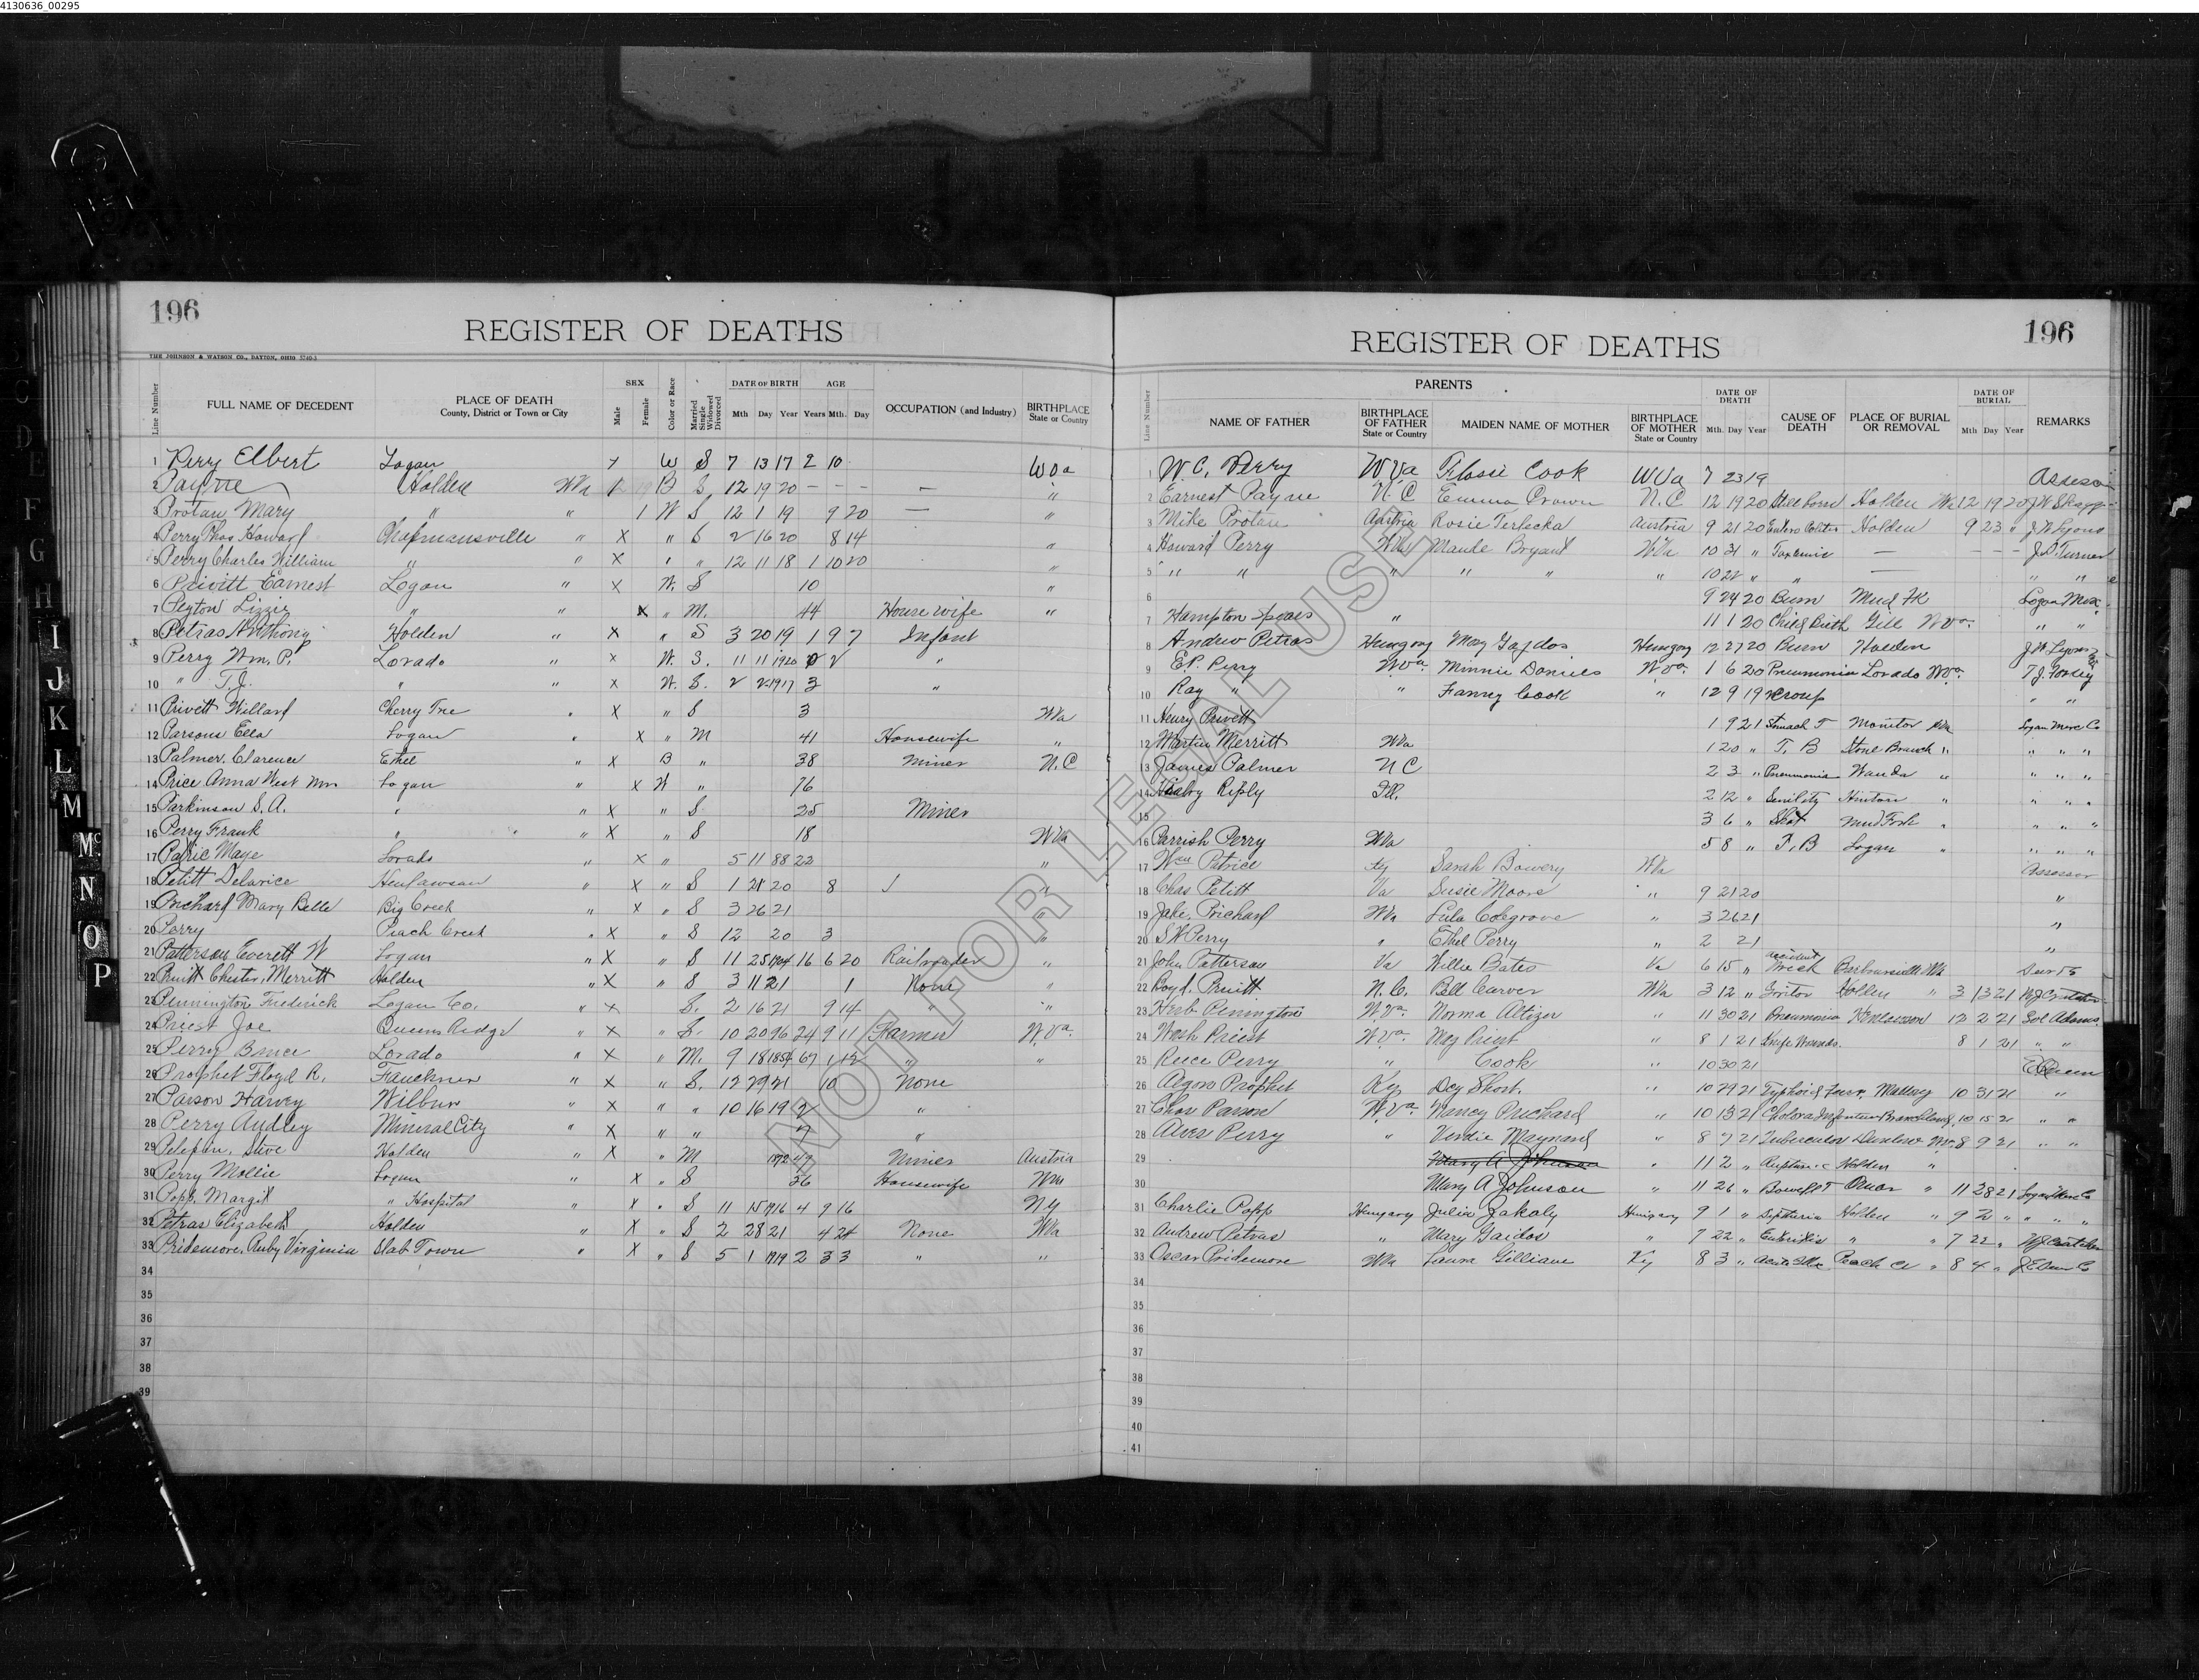 4130636_00295
196
REGISTER OF DEATHS
THE JOHNSON & WATSON CO., DAYTON, OHIO
Line Number FULL NAME OF DECEDENT PLACE OF DEATH County, District or Town or City SEX Male Female Color or Race Married Single Widowed Divorced DATE OF BIRTH Mth Day Year AGE Years Mth. Day OCCUPATION (and Industry) BIRTHPLACE State or Country
1 Perry Elbert Logan W S 7 13 17 2 10 W Va
2 Payne Holden WVa B S 12 19 20 - - - —
3 Protan Mary " " 1 W S 12 1 19 9 20 — "
4 Perry Thos Howard Chapmansville " X " S 2 16 20 8 14 "
5 Perry Charles William " " X " " 12 11 18 1 10 20 "
6 Earnest Logan " X W. S 10 "
7 Peyton Lizzie " " X " M. 44 House wife "
8 Petras Anthony Holden " X " S 3 20 19 1 9 7 Infant
9 Perry Wm. P. Lorado " X W. S. 11 11 1920 2 "
10 " T.J. " " X W. S. 2 2 1917 3 "
11 Privett Willard Cherry Tree " X " S 3 WVa
12 Parsons Ella Logan " X " M 41 Housewife "
13 Palmer, Clarence Ethel " X B " 38 Miner N.C
14 Price Anna West Logan " X W " 76
15 Parkinson S. A. " " X " S 25 Miner
16 Perry Frank " " X " S 18 WVa
17 Maye Lorado " X " 5 11 88 22 "
18 Petitt Delarice Henlawson " X " S 1 21 20 8 "
19 Prichard Mary Belle Big Creek " X " S 3 26 21 "
20 Perry Peach Creek " X " S 12 20 3 "
21 Patterson Everett W Logan " X " S 11 25 1904 16 6 20 Railroader "
22 Pruitt Chester, Merritt Holden " X " S 3 11 21 1 None "
23 Pennington Frederick Logan Co. " X S. 2 16 21 9 14 " "
24 Priest Joe Queens Ridge " X " S. 10 20 96 24 9 11 Farmer W.Va.
25 Perry Bruce Lorado " X " M. 9 18 1854 67 1 12 " "
26 Prophet Floyd R. Faulkner " X " S. 12 29 21 10 None
27 Parson Harvey Wilbur " X " " 10 16 19 2 "
28 Perry Audley Mineral City " X " " 7 "
29 Steve Holden " X " M 1872 49 Miner Austria
30 Perry Mollie Logan " X " S 36 Housewife WVa
31 Popp, Margit " Hospital " X " S 11 15 1916 4 9 16 NY
32 Petras Elizabeth Holden " X " S 2 28 21 4 24 None WVa
33 Pridemore, Ruby Virginia Slab Town " X " S 5 1 1919 2 3 3 " "
34
35
36
37
38
39
196
REGISTER OF DEATHS
Line Number PARENTS NAME OF FATHER BIRTHPLACE OF FATHER State or Country MAIDEN NAME OF MOTHER BIRTHPLACE OF MOTHER State or Country DATE OF DEATH Mth. Day Year CAUSE OF DEATH PLACE OF BURIAL OR REMOVAL DATE OF BURIAL Mth Day Year REMARKS
1 W. C. Perry W Va Flosie Cook W Va 7 23 19 Assessor
2 Earnest Payne N.C Emma N.C 12 19 20 Still born Holden Wa 12 19 20
3 Mike Protan Austria Rosie Terlecka Austria 9 21 20 Holden 9 23 " J W Lyons
4 Howard Perry WVa Maude Bryant WVa 10 31 " — - - - J.S. Turner
5 " " " " " " 10 22 " " — " "
6 9 24 20 Burn Mud Fk Logan Merc.
7 Hampton " 11 1 20 Child Birth Gill W Va. " "
8 Andrew Petras Hungary Mary Gajdos Hungary 12 27 20 Burn Holden J W Lyons
9 E.P. Perry W Va Minnie Daniels W Va 1 6 20 Pneumonia Lorado W Va.
10 Ray " " Fanny Cook " 12 9 19 Croup " "
11 Henry Privett 1 9 21 Stomach T Monitor WVa Logan Merc Co
12 Martin Merritt WVa 1 20 " T. B Stone Branch " " " "
13 James Palmer N C 2 3 " Pneumonia Wanda " " " "
14 Riply Ill. 2 12 " Senility Hinton " " " "
15 3 6 " Shot Mud Fork " " " "
16 Parrish Perry WVa 5 8 " T. B Logan " " " "
17 Wm Patrice Ky Sarah Bowery WVa Assessor
18 Chas. Petitt Va Susie Moore " 9 21 20 "
19 Jake. Prichard WVa Lula Colegrove " 3 26 21 "
20 S W Perry " Ethel Perry " 2 21 "
21 John Patterson Va Willie Bates Va 6 15 " accident Wreck Barboursville WVa
22 Boyd. Pruitt N. C. Bell Carver WVa 3 12 " Holden " 3 13 21
23 Herb Pinington W.Va. Norma Altizer " 11 30 21 Pneumonia Henlawson 12 2 21 Sol Adams.
24 Wash Priest W.Va. Meg Priest " 8 1 21 Knife Wounds. 8 1 21 " "
25 Reece Perry " Cook " 10 30 21
26 Prophet Ky Dcy Short. " 10 29 21 Typhoid Fever Mallory 10 31 21 "
27 Chas Parson W.Va. Nancy Prichard " 10 13 21 Cholera Infantum Branchland 10 15 21 " "
28 Alvis Perry " Verdie Maynard " 8 7 21 Tuberculosis Dunlow WVa 8 9 21 " "
29 Mary A Johnson " 11 2 " Holden "
30 Mary A Johnson " 11 26 " Bowell T Omar " 11 28 21 Logan Merc Co
31 Charlie Popp Hungary Julia Zakaly Hungary 9 1 " Diptheria Holden " 9 2 " " " "
32 Andrew Petras " Mary Gaidos " 7 22 " " " 7 22 "
33 Oscar Pridemore WVa Laura Gilliam Ky 8 3 " Peach Cr " 8 4 "
34
35
36
37
38
39
40
41
NOT FOR LEGAL USE
I
J
K
L
M
Mc
N
O
P